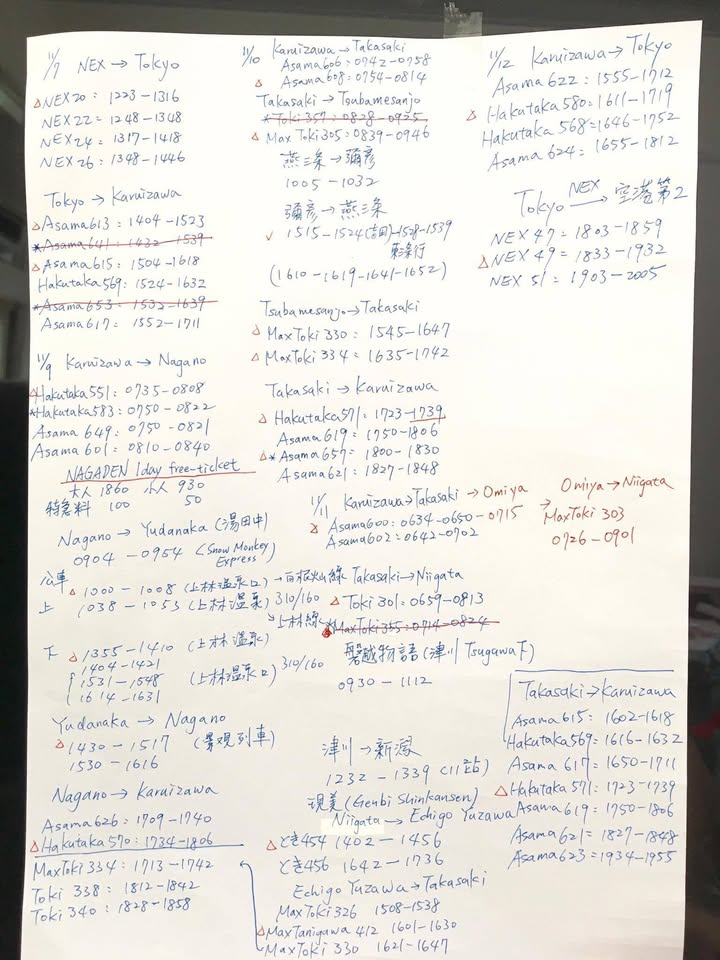 11/7 NEX → Tokyo
△NEX20: 1223-1316
NEX22: 1248-1348
NEX24: 1317-1418
NEX26: 1348-1446
Tokyo → Karuizawa
△Asama613: 1404-1523
*Asama641: 1432-1539
△Asama615: 1504-1618
Hakutaka569: 1524-1632
*Asama653: 1532-1639
Asama617: 1552-1711
11/9 Karuizawa → Nagano
△Hakutaka551: 0735-0808
*Hakutaka583: 0750-0822
Asama 649: 0750-0821
Asama 601: 0810-0840
NAGADEN 1day free-ticket
大人 1860 小人 930
特急料 100 50
Nagano → Yudanaka (湯田中)
0904-0954 (Snow Monkey Express)
公車
上 △1000-1008 (上林温泉口) →白根火山線
1038-1053 (上林温泉) 310/160
→上林線
下 △1355-1410 (上林温泉)
1404-1421
1531-1548 (上林温泉口) 310/160
1614-1631
Yudanaka → Nagano
△1430-1517 (景観列車)
1530-1616
Nagano → Karuizawa
Asama626: 1709-1740
△Hakutaka570: 1734-1806
MaxToki334: 1713-1742
Toki 338: 1812-1842
Toki 340: 1828-1858
11/10 Karuizawa → Takasaki
Asama606: 0742-0758
△Asama608: 0754-0814
Takasaki → Tsubamesanjo
*Toki 357: 0828-0925
△Max Toki305: 0839-0946
燕三条 → 彌彦
1005-1032
彌彦 → 燕三条
✓ 1515-1524(吉田)-1528-1539
東三条行
(1610-1619-1641-1652)
Tsubamesanjo → Takasaki
△MaxToki 330: 1545-1647
△MaxToki 334: 1635-1742
Takasaki → Karuizawa
△Hakutaka571: 1723-1739
Asama619: 1750-1806
△*Asama657: 1800-1830
Asama621: 1827-1848
11/11 Karuizawa → Takasaki → Omiya
Asama600: 0634-0650-0715
Asama602: 0642-0702
→ Omiya → Niigata
MaxToki 303
0726-0901
Takasaki → Niigata
△Toki 301: 0659-0813
*MaxToki355: 0714-0824
磐越物語 (津川 Tsugawa下)
0930-1112
津川 → 新潟
1232-1339 (11站)
現美 (Genbi Shinkansen)
Niigata → Echigo Yuzawa
△とき454 1402-1456
とき456 1642-1736
Echigo Yuzawa → Takasaki
MaxToki326 1508-1538
△MaxTanigawa 412 1601-1630
MaxToki 330 1621-1647
11/12 Karuizawa → Tokyo
Asama622: 1555-1712
△Hakutaka580: 1611-1719
Hakutaka 568: 1646-1752
Asama 624: 1655-1812
Tokyo NEX → 空港第2
NEX 47: 1803-1859
△NEX 49: 1833-1932
NEX 51: 1903-2005
Takasaki → Karuizawa
Asama615: 1602-1618
Hakutaka569: 1616-1632
Asama 617: 1650-1711
△Hakutaka571: 1723-1739
Asama619: 1750-1806
Asama621: 1827-1848
Asama623: 1934-1955